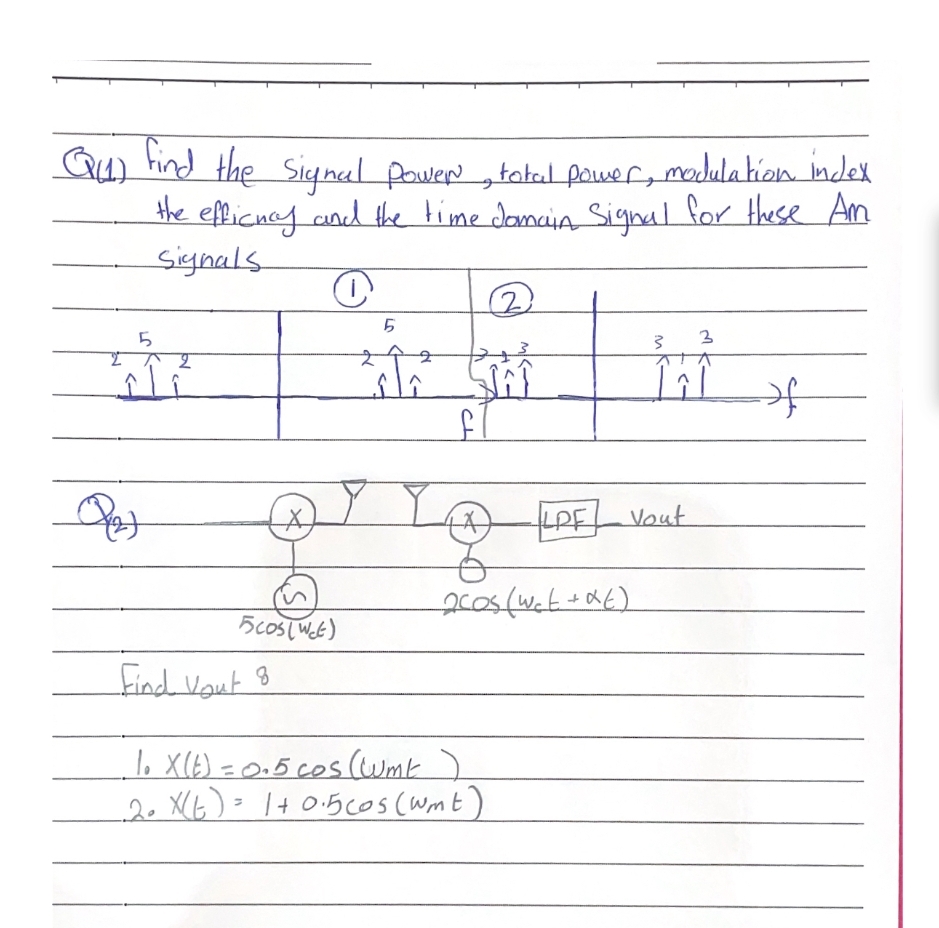 Q(1) find the Signal Power, total power, modulation index
the efficncy and the time domain Signal for these Am
signals
1 2
5 5 3 3
2 2 2 2 3 1 3 1
f f
Q(2)
X X LPF Vout
5cos(Wct) 2cos(Wct + αt)
Find Vout 8
1. X(t) = 0.5 cos(Wmt )
2. X(t) = 1 + 0.5cos(Wmt)